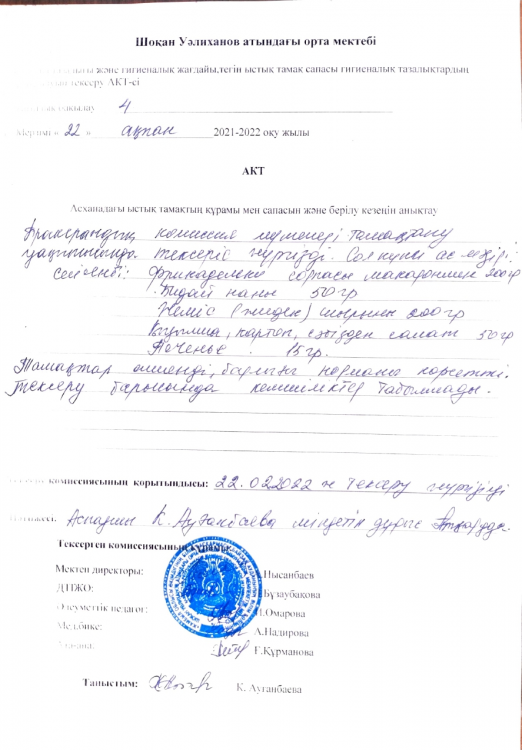 Шоқан Уәлиханов атындағы орта мектебі
және гигиеналық жағдайы,тегін ыстық тамақ сапасы гигиеналық тазалықтардың
тексеру АКТ-сі
4
Мерзімі « 22 » ақпан 2021-2022 оқу жылы
АКТ
Асханадағы ыстық тамақтың құрамы мен сапасын және берілу кезеңін анықтау
Бракераждық комиссия мүшелері тамақтану
уақытында тексеріс жүргізді. Сол күнгі ас мәзірі
фрикаделька сорпасы макаронмен 200гр
Бидай наны 50гр
Жеміс (жидек) шырыны 200гр
Капуста, картоп, сәбізден салат 50гр
Печенье . 15гр.
Тамақтар өлшенді, барлығы норманы көрсетті.
Тексеру барысында кемшіліктер табылмады.
комиссиясының қорытындысы: 22.02.2022 ж тексеру жүргізілді
Аспазшы К.Ауганбаева міндетін дұрыс атқаруда
Тексерген комиссиясының
Мектеп директоры: Нысанбаев
ДТІЖО: Бұзаубакова
Әлеуметтік педагог: Омарова
Мед.бике: А.Надирова
Е.Құрманова
Таныстым: К. Ауганбаева